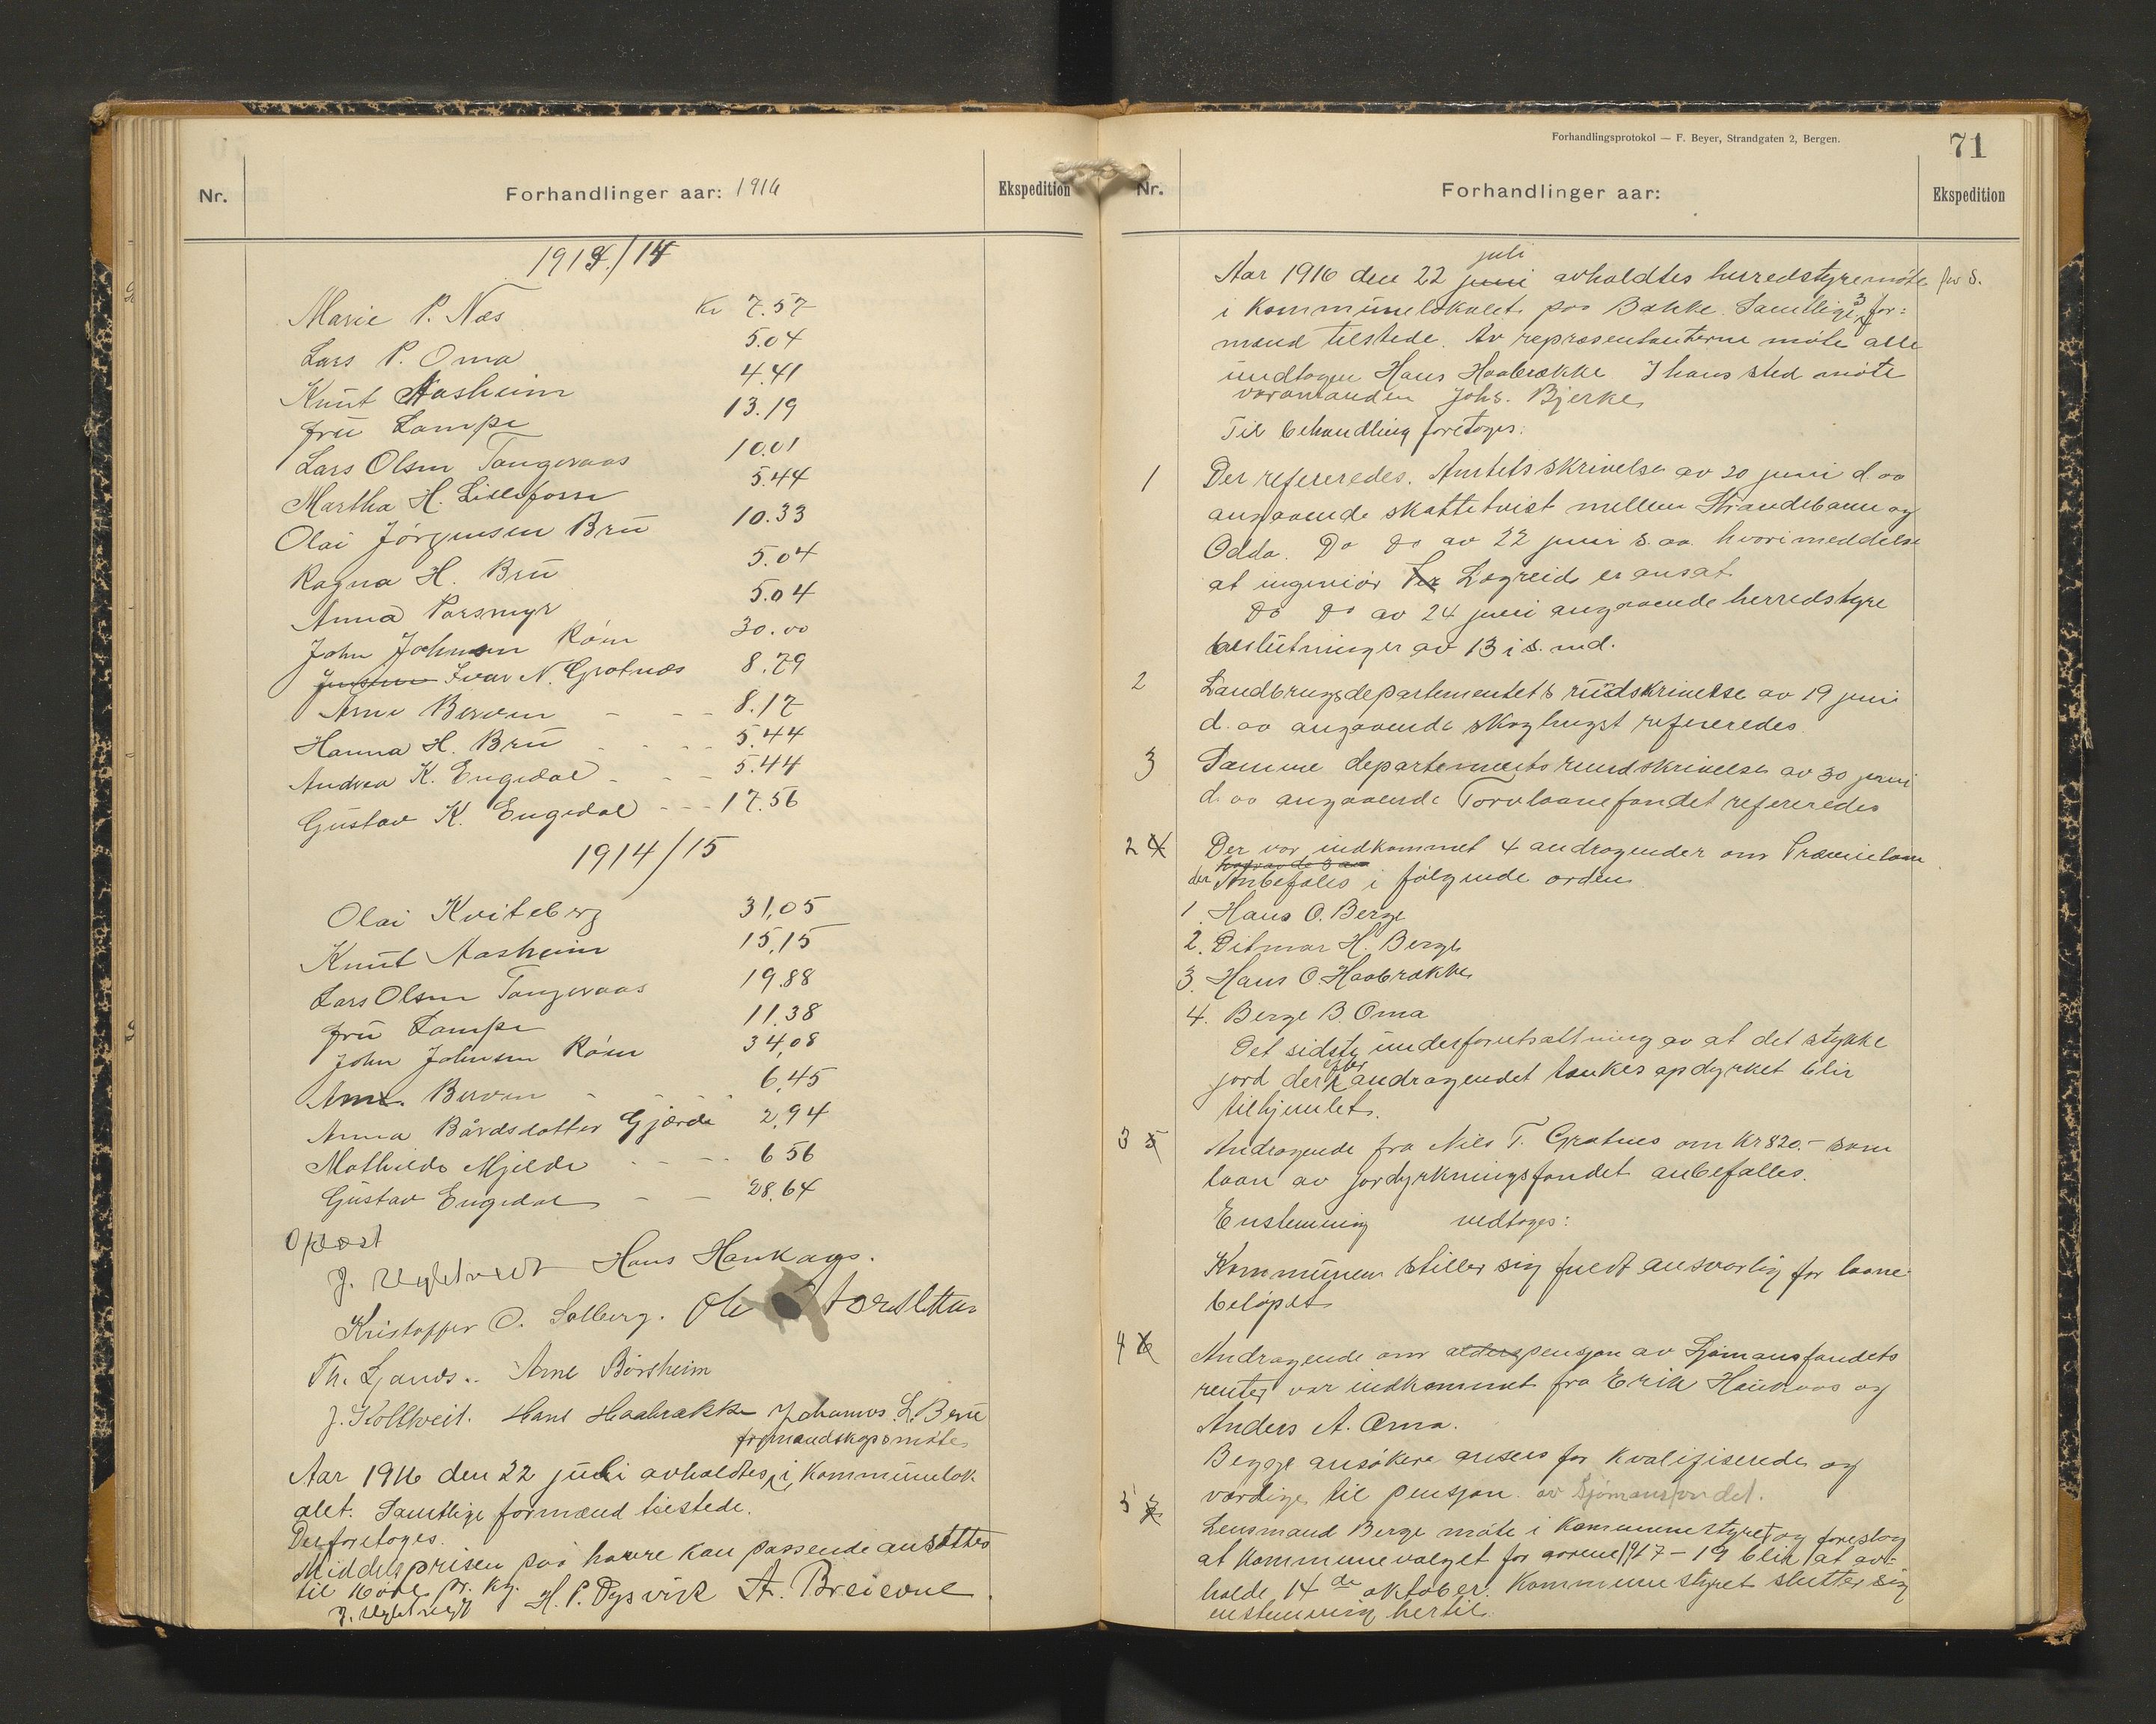 Nr.
Forhandlinger aar: 1916
Ekspedition
1913/14
Marie P. Næs Kr 7.57
Lars P. Oma 5.04
Knut Aasheim 4.41
Fru Lampe 13.19
Lars Olsen Tangeraas 10.01
Martha H. Lillefosse 5.44
Olai Jørgensen Bru 10.33
Ragna H. Bru 5.04
Anna Porsmyr 5.04
John Johnsen Røen 30.00
Ivar N. Grotnæs 8.79
Arne Berven - - - 8.17
Hanna H. Bru - - - 5.44
Andrea K. Engedal - - - 5.44
Gustav K. Engedal - - - 17.56
1914/15
Olai Kviteberg 31,05
Knut Aasheim 15,15
Lars Olsen Tangeraas 19.88
Fru Lampe 11.38
John Johnsen Røen 34,08
Arne Berven - - - 6,45
Anna Bårdsdotter Gjerde 2,94
Mathilde Mjelde - - - 6 56
Gustav Engedal - - 28,64
Oplæst
Hans Haukaas.
Kristoffer O. Solberg. Ole
Th. Ljones. Arne Børsheim
J. Kolltveit. Hans Haabrække Johannes L. Bru
formandskapsmøte
Aar 1916 den 22 juli avholdtes i kommunelok
alet. Samtlige formænd tilstede.
Der foretoges.
Middelsprisen paa havre kan passende ansættes
til 16 øre pr. kg.
H. P. Dysvik A. Breievne

Forhandlingsprotokol — F. Beyer, Strandgaten 2, Bergen.
71
Nr.
Forhandlinger aar:
Ekspedition
juli
Aar 1916 den 22 juni avholdtes herredstyremøte
i kommunelokalet paa Bakke. Samtlige 3 for=
mænd tilstede. Av repræsentanterne møte alle
undtagen Hans Haabrække I hans sted møte
varamanden Johs. Bjerke,
Til behandling foretoges:
1 Der refereredes. Amtets skrivelse av 20 juni d. aa
angaaende skattetvist mellem Strandebarm og
Odda. Do do av 22 juni s. aa. hvori meddeles
at ingeniør Lægreid er ansat
Do do av 24 juni angaaende herredstyre
beslutninger av 13 i s. md.
2 Landbruksdepartementets rundskrivelse av 19 juni
d. aa angaaende skoghugst refereredes.
3 Samme departements rundskrivelse av 30 juni
d. aa angaaende Torvlaanefondet refereredes
2 4 Der var indkommet 4 andragender om Præmielaan
der Anbefales i følgende orden
1. Hans O. Berge
2. Ditmar H. Berge
3. Hans O. Haabrække
4. Berge B. Oma
Det sidste under forutsætning av at det stykke
jord der efter andragendet tænkes opdyrket blir
tilhjemlet.
3 5 Andragende fra Nils T. Grotnes om Kr 820.- som
laan av jordyrkningsfondet anbefalles.
Enstemmig vedtages:
Kommunen stiller sig fuldt ansvarlig for laane
beløpet
4 6 Andragende om alderspensjon av Sjømansfondets
renter var indkommet fra Erik Haukaas og
Anders A. Oma.
Begge ansøkere ansees for kvalifiserede og
værdige til pensjon. av Sjømansfondet.
5 7 Lensmand Berge møte i Kommunestyret og foreslog
at kommunevalget for aarene 1917 - 19 blir at av=
holde 14 de oktober. Kommunestyret slutter sig
enstemmig hertil.